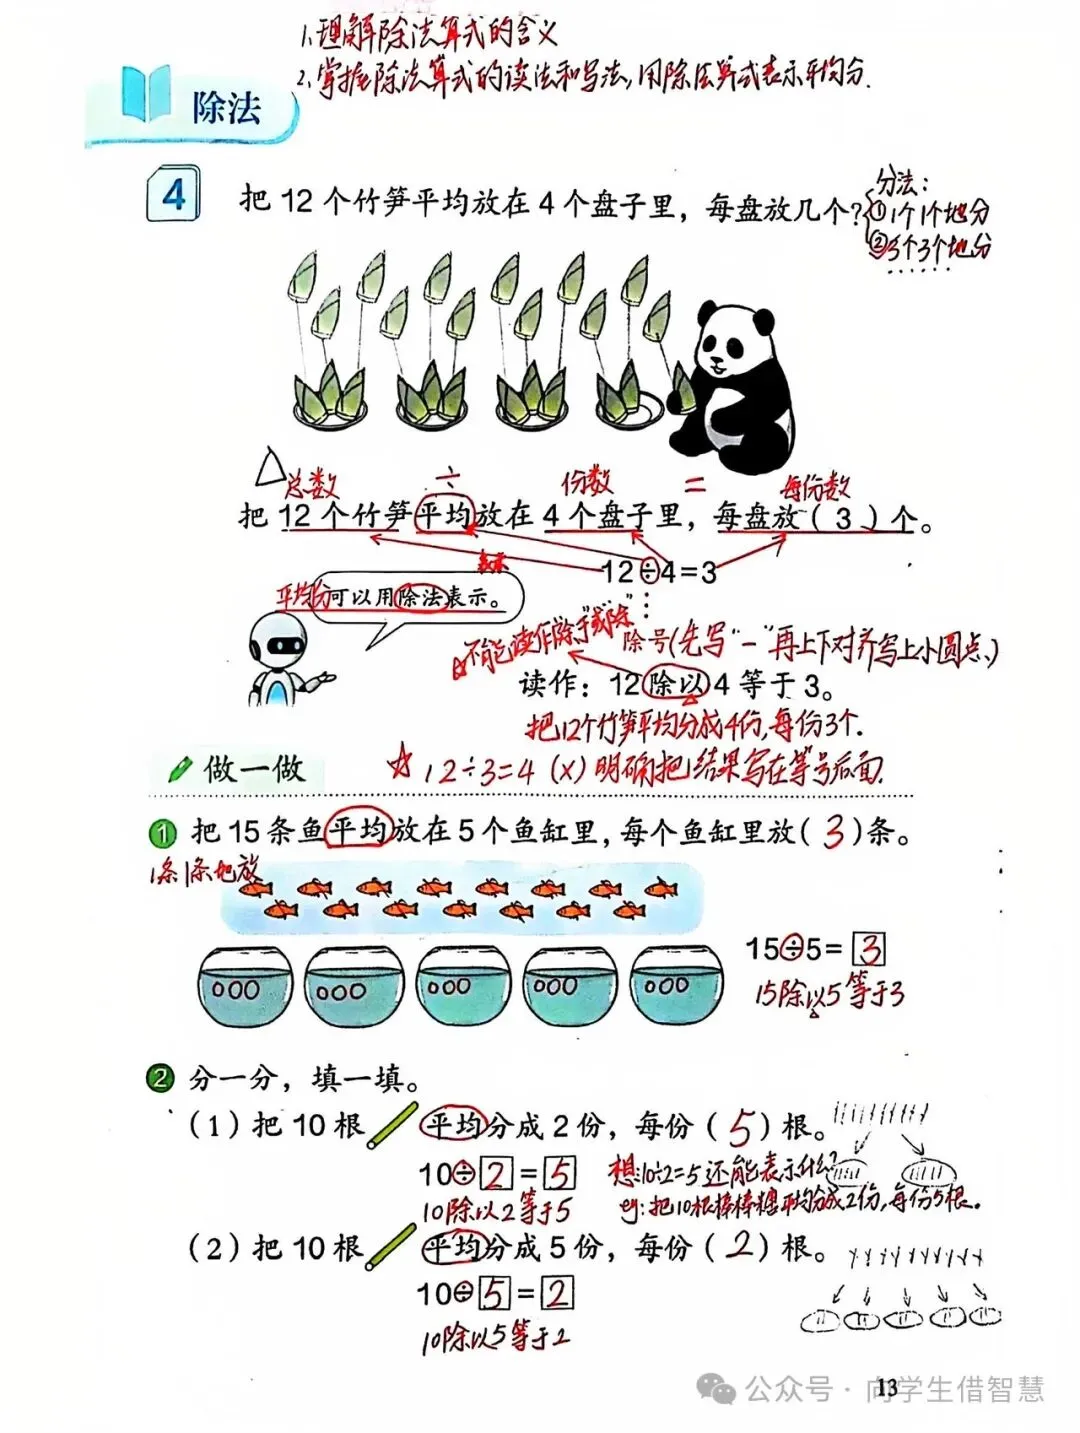 1.理解除法算式的含义
2.掌握除法算式的读法和写法,用除法算式表示平均分.
除法
4
把 12 个竹笋平均放在 4 个盘子里，每盘放几个？
分法：
①1个1个地分
②3个3个地分
总数 ÷ 份数 = 每份数
把 12 个竹笋平均放在 4 个盘子里，每盘放（ 3 ）个。
12÷4=3
平均分可以用除法表示。
不能读作"除于"或"除"
除号(先写"一"再上下对齐写上小圆点、)
读作：12 除以 4 等于 3。
把12个竹笋平均分成4份,每份3个.
做一做
☆12÷3=4 (×) 明确把结果写在等号后面.
1 把 15 条鱼平均放在 5 个鱼缸里，每个鱼缸里放( 3 )条。
1条1条地放
15÷5=3
15除以5等于3
2 分一分，填一填。
（1）把 10 根 平均分成 2 份，每份（ 5 ）根。
10÷2=5
想:10÷2=5还能表示什么?
10除以2等于5
eg:把10根棒棒糖平均分成2份,每份5根.
（2）把 10 根 平均分成 5 份，每份（ 2 ）根。
10÷5=2
10除以5等于2
13
公众号 · 向学生借智慧